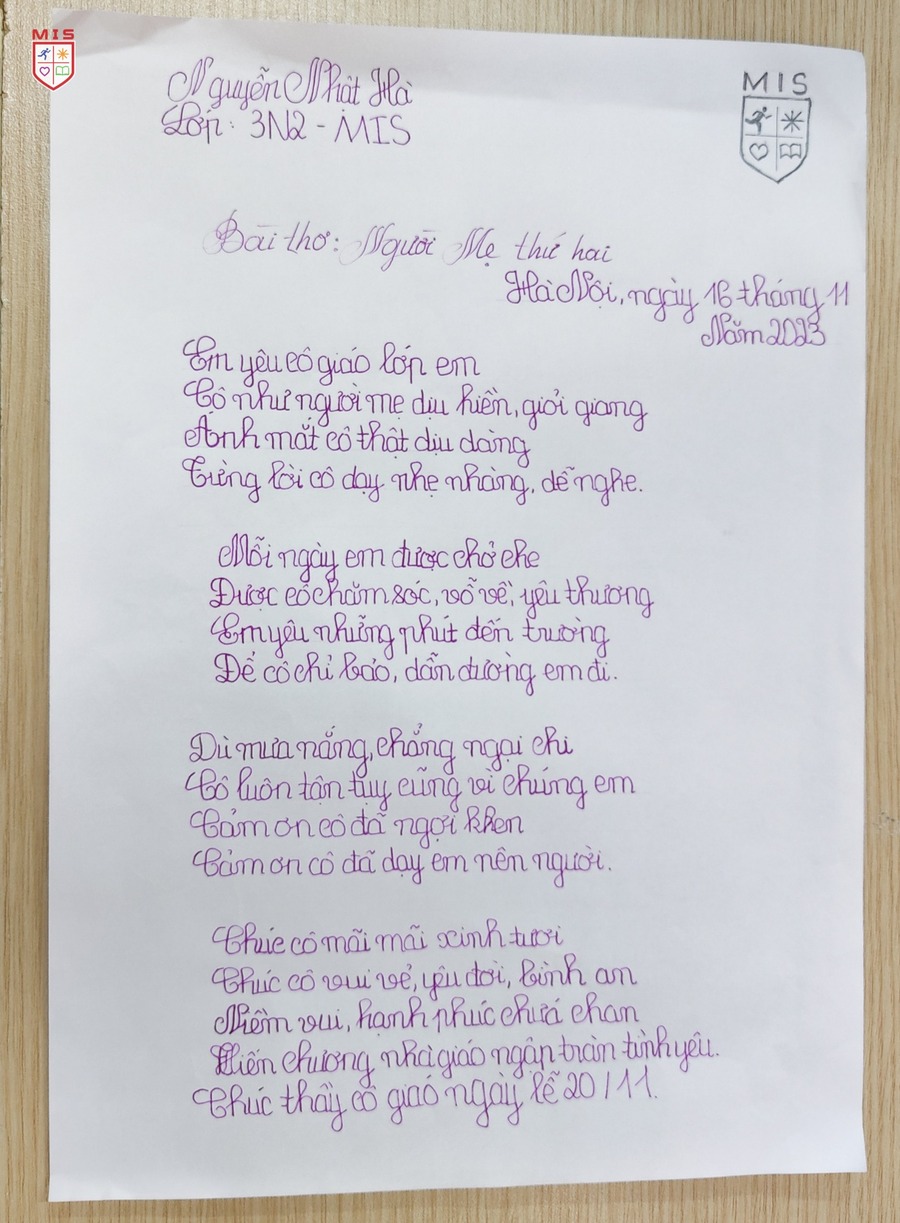 MIS
Nguyễn Nhật Hà
Lớp: 3N2 - MIS
MIS
Bài thơ: Người Mẹ thứ hai
Hà Nội, ngày 16 tháng 11
Năm 2023
Em yêu cô giáo lớp em
Cô như người mẹ dịu hiền, giỏi giang
Ánh mắt cô thật dịu dàng
Từng lời cô dạy nhẹ nhàng, dễ nghe.
Mỗi ngày em được chở che
Được cô chăm sóc, vỗ về, yêu thương
Em yêu những phút đến trường
Để cô chỉ bảo, dẫn đường em đi.
Dù mưa nắng, chẳng ngại chi
Cô luôn tận tụy cũng vì chúng em
Cảm ơn cô đã ngợi khen
Cảm ơn cô đã dạy em nên người.
Chúc cô mãi mãi xinh tươi
Chúc cô vui vẻ, yêu đời, bình an
Niềm vui, hạnh phúc chứa chan
Hiến chương nhà giáo ngập tràn tình yêu.
Chúc thầy cô giáo ngày lễ 20/11.